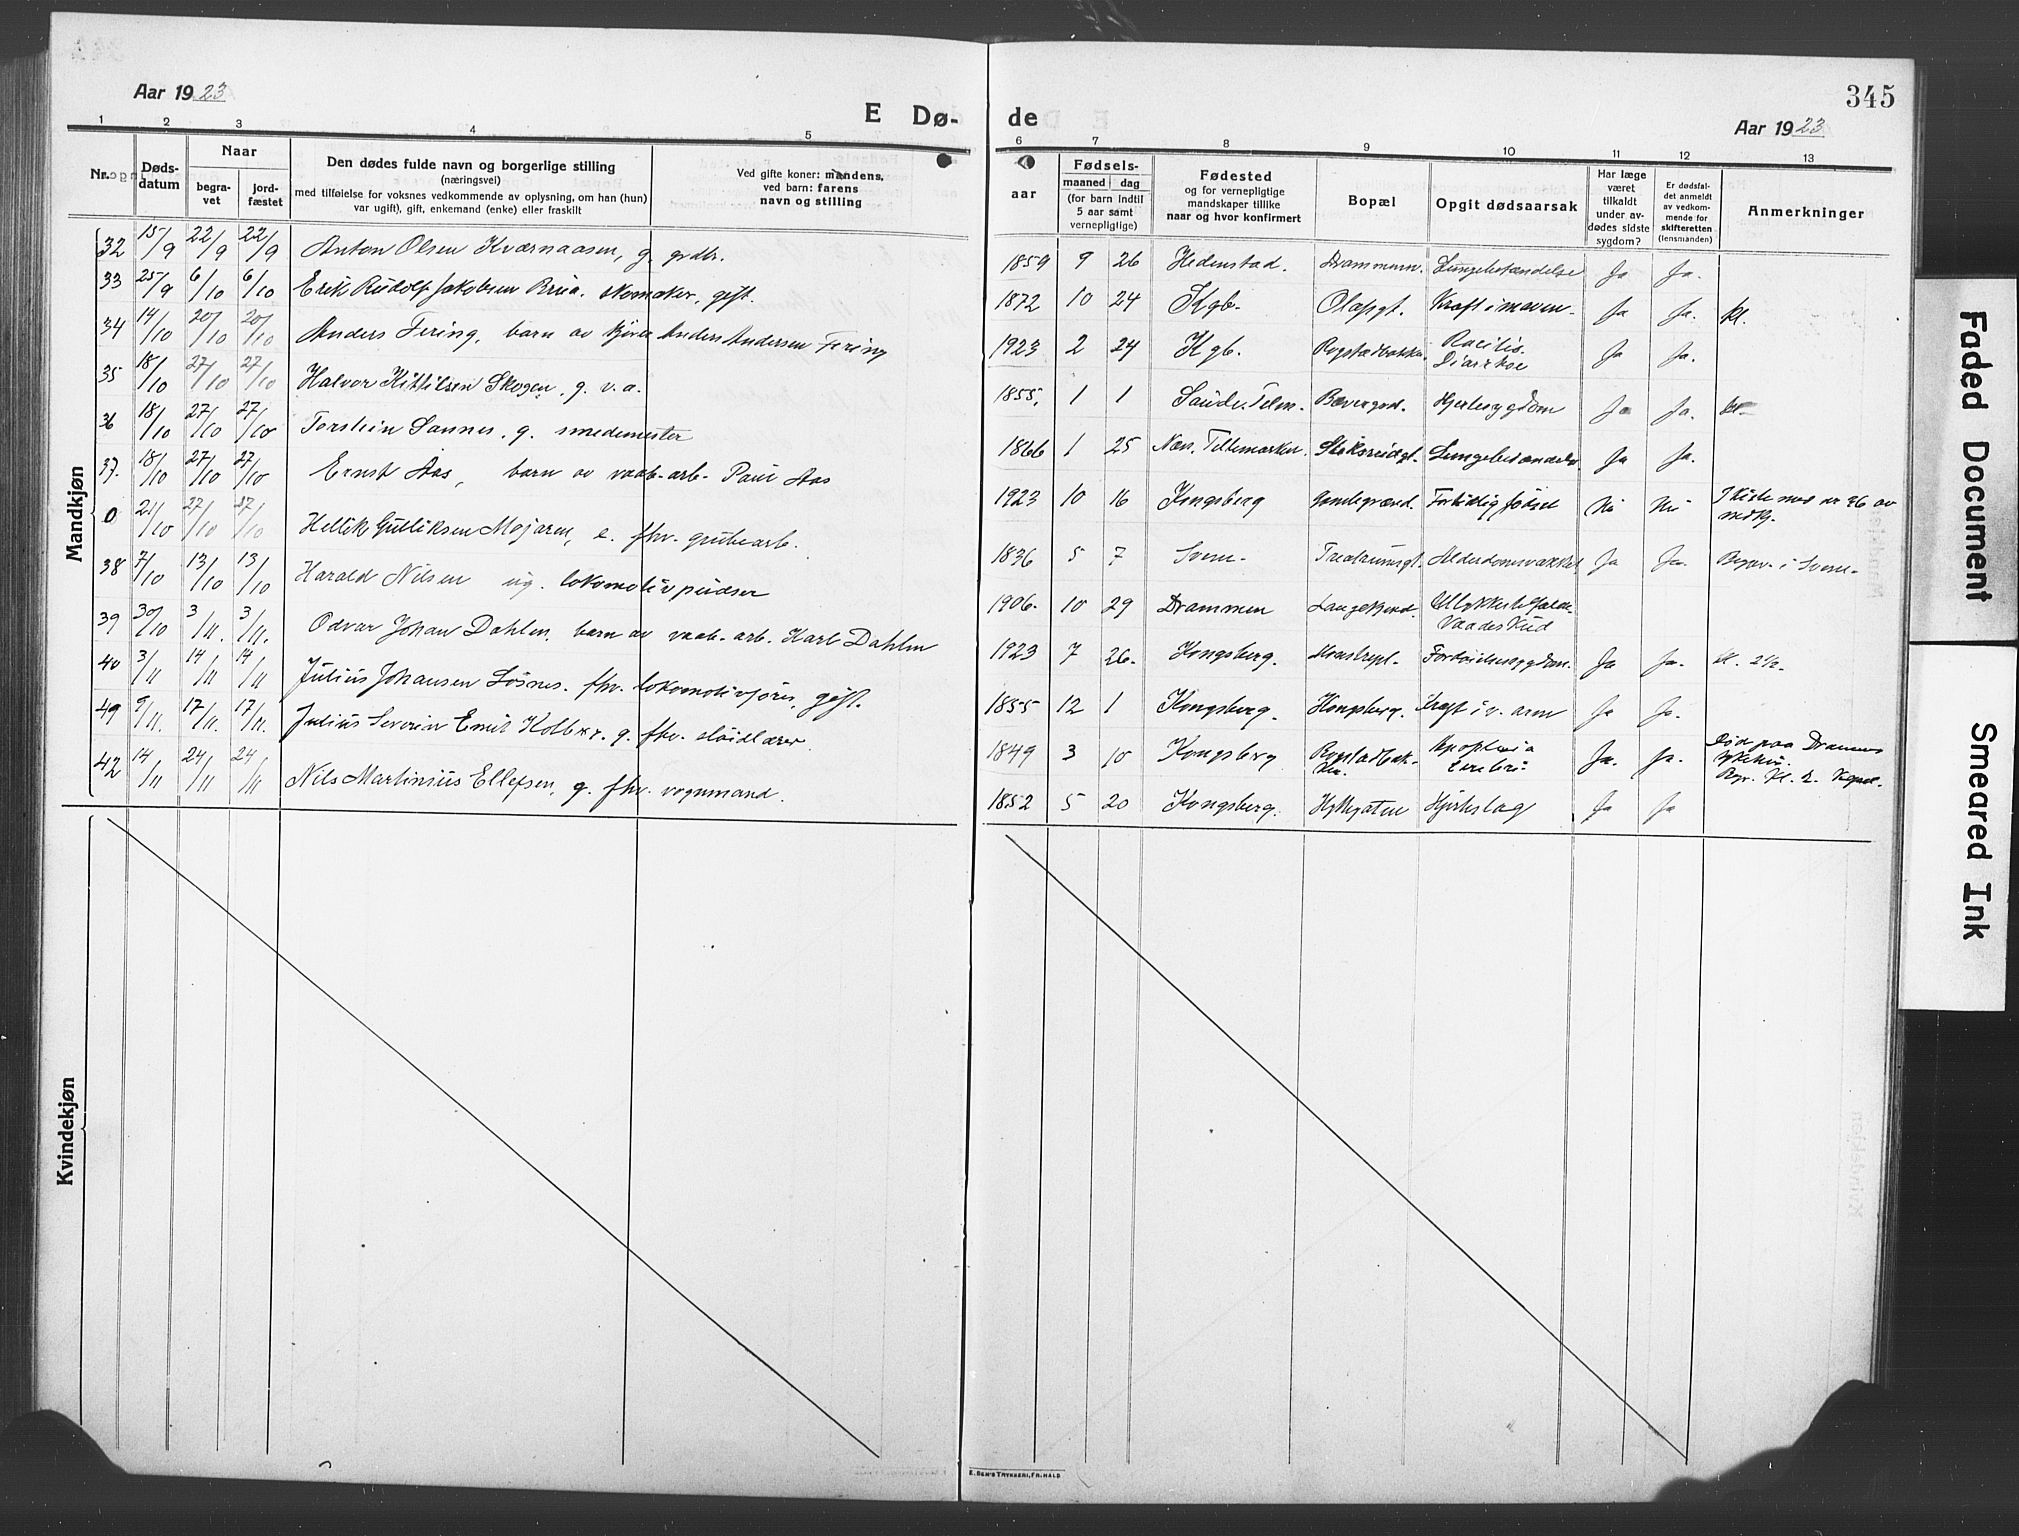 345
Aar 1923
E Dø-
de
Aar 1923
1 2 3 4 5
6 7 8 9 10 11 12 13
Nr.
Døds-
datum
Naar
begra-
vet
jord-
fæstet
Den dødes fulde navn og borgerlige stilling
(næringsvei)
med tilføielse for voksnes vedkommende av oplysning, om han (hun)
var ugift), gift, enkemand (enke) eller fraskilt
Ved gifte koner: mandens,
ved barn: farens
navn og stilling
aar
Fødsels-
maaned dag
(for barn indtil
5 aar samt
vernepligtige)
Fødested
og for vernepligtige
mandskaper tillike
naar og hvor konfirmert
Bopæl
Opgit dødsaarsak
Har læge
været
tilkaldt
under av-
dødes sidste
sygdom?
Er dødsfal-
det anmeldt
av vedkom-
mende for
skifteretten
(lensmanden)
Anmerkninger
Mandkjøn
32 15/9 22/9 22/9 Anton Olsen Kværnaasen, g. grdbr. 1859 9 26 Hedenstad. Drammenv. Lungebetændelse Ja Ja.
33 25/9 6/10 6/10 Erik Rudolf Jakobsen Brua. gift. 1872 10 24 Kgb. Olafsgt. Kræft i maven. Ja Ja. kl.
34 14/10 20/10 20/10 Anders Fering, barn av Anders Andersen Fering 1923 2 24 Kgb. Rogstadbakken Racitis.
Diarrhoe Ja Ja.
35 18/10 27/10 27/10 Halvor Kittilsen Skogen. g. v. a. 1855, 1 1 Saude. Telm. Bævergrd. Hjertesygdom Ja Ja.
36 18/10 27/10 27/10 Torstein Sannes. g. smedemester 1866 1 25 Tellemarken. Lungebetændelse Ja Ja.
37. 18/10 27/10 27/10 Ernst Aas, barn av vaab-arb. Paul Aas 1923 10 16 Kongsberg Fortidlig fødsel Nei Nei I kiste med nr 26 av
mdkj.
0 21/10 27/10 27/10 Hellik Gulliksen Mojaren, e. fhv. grubearb. 1836 5 7 Svene. Alderdomsvakhet Ja Ja. Begrav. i Svene.
38 7/10 13/10 13/10 Harald Nilsen ug. lokomotivpudser 1906. 10 29 Drammen Ulykkestilfælde.
Vaadeskud
39 30/10 3/11. 3/11. Odvar Johan Dahlen. barn av vaab. arb. Karl Dahlen 1923 7 26. Kongsberg. Ja Ja. kl. 2½.
40 3/11 14/11 14/11 Julius Johansen Losnes. fhv. lokomotivfører, gift. 1855 12 1 Kongsberg. Kongsberg. Kræft i v. arm Ja Ja.
49 9/11. 17/11. 17/11. Julius Severin Emil Kolberg. g. fhv. sløidlærer. 1849 3 10 Kongsberg Rogstadbak-
ken. Apoplexia
cerebri Ja. Ja. Død paa Drammens
sykehus.
42 14/11 24/11 24/11 Nils Martinius Ellefsen, g. fhv. vognmand. 1852 5 20 Kongsberg. Hyttegaten Hjerteslag Ja Ja
Kvindekjøn
E. SEM'S TRYKKERI, FR.HALD
Faded Document
Smeared Ink